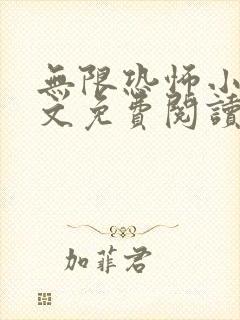 無限恐怖小
文免費閱讀
加菲君